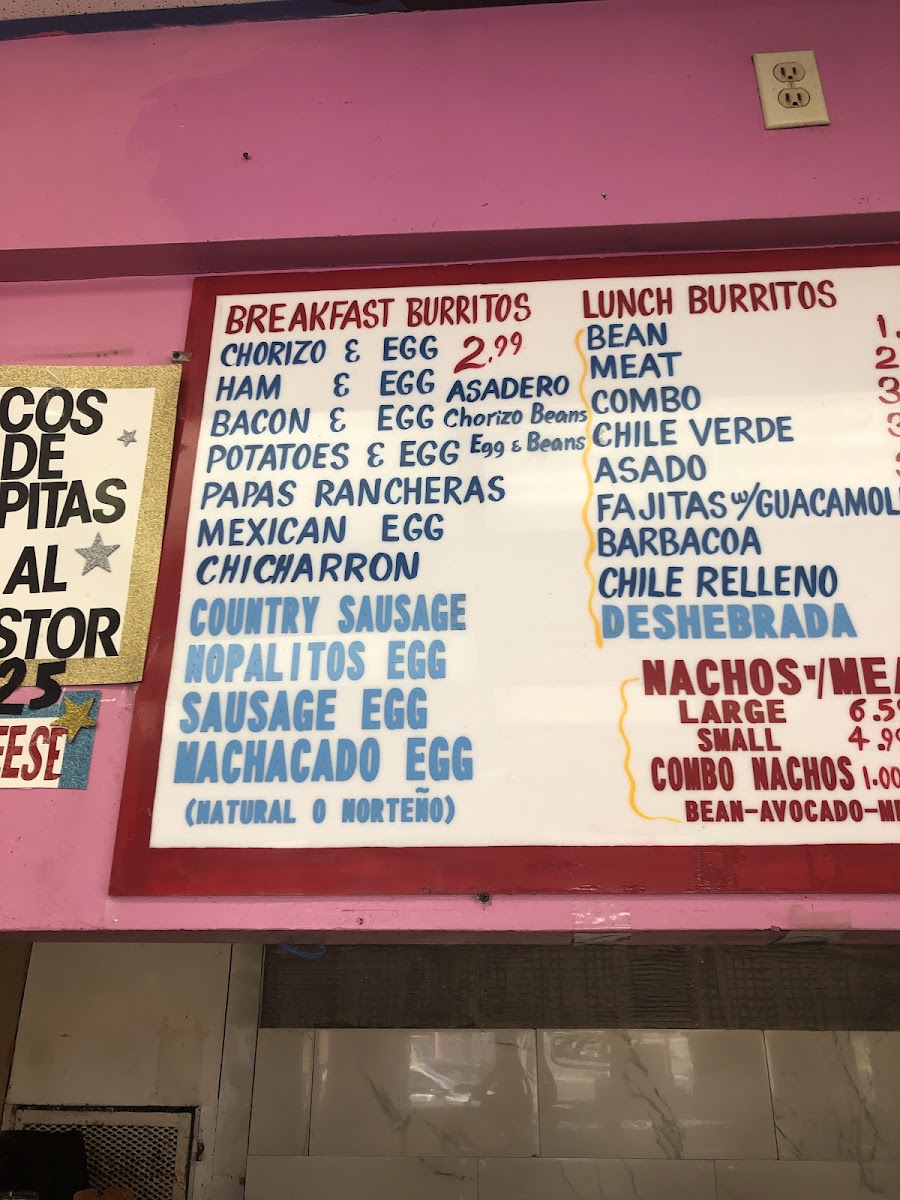 COS
DE
PITAS
AL
STOR
25
EESE
BREAKFAST BURRITOS
CHORIZO & EGG 2.99
HAM & EGG ASADERO
BACON & EGG Chorizo Beans
POTATOES & EGG Egg & Beans
PAPAS RANCHERAS
MEXICAN EGG
CHICHARRON
COUNTRY SAUSAGE
NOPALITOS EGG
SAUSAGE EGG
MACHACADO EGG
(NATURAL O NORTEÑO)
LUNCH BURRITOS
BEAN 1.
MEAT 2
COMBO 3
CHILE VERDE 3
ASADO
FAJITAS w/GUACAMOL
BARBACOA
CHILE RELLENO
DESHEBRADA
NACHOS w/MEA
LARGE 6.59
SMALL 4.99
COMBO NACHOS 1.00
BEAN-AVOCADO-ME